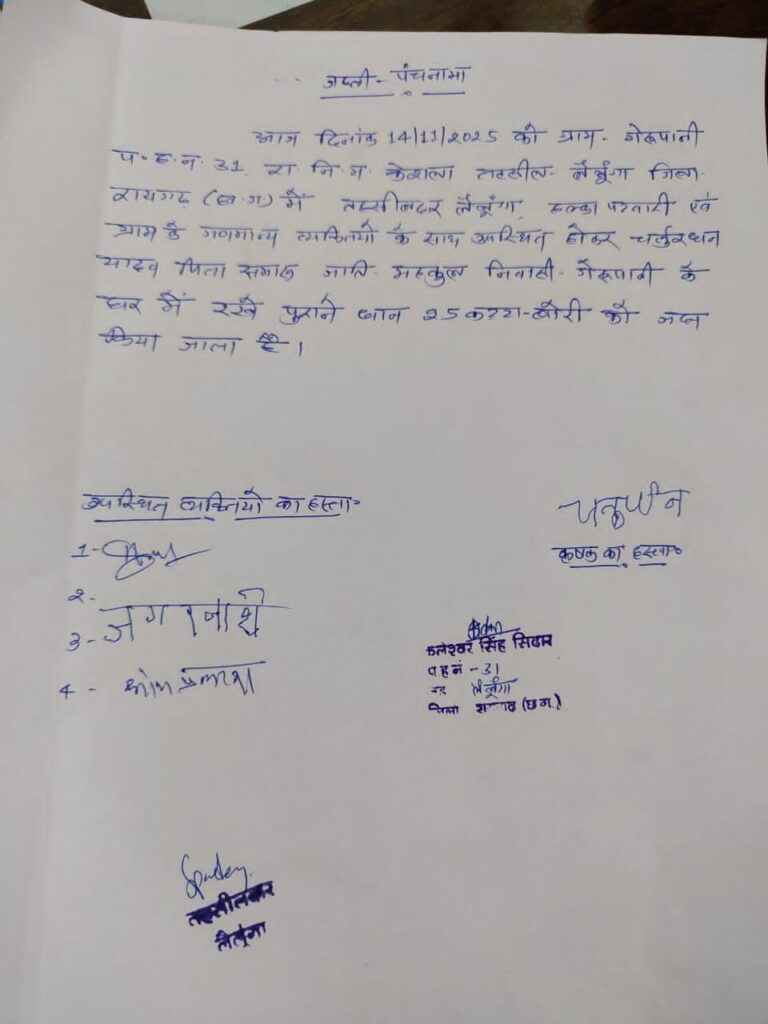 जप्ती - पंचनामा
आज दिनांक 14/11/2025 को ग्राम - गेरूपानी
प.ह.न. 31. रा.नि.म. केशला तहसील - लैलूंगा जिला-
रायगढ़ (छ.ग.) में तहसीलदार लैलूंगा, हल्का पटवारी एवं
ग्राम के गणमान्य व्यक्तियों के साथ उपस्थित होकर
यादव पिता जाति - महकुल निवासी - गेरूपानी के
घर में रखे पुराने धान 25 कट्टा - बोरी को जप्त
किया जाता है।
उपस्थित व्यक्तियों का हस्ता०
कृषक का हस्ता०
1 -
2 -
3 -
4 - ओमप्रकाश
कलेश्वर सिंह सिदार
प ह नं - 31
लैलूंगा
जिला रायगढ़ (छ.ग.)
तहसीलदार
लैलूंगा